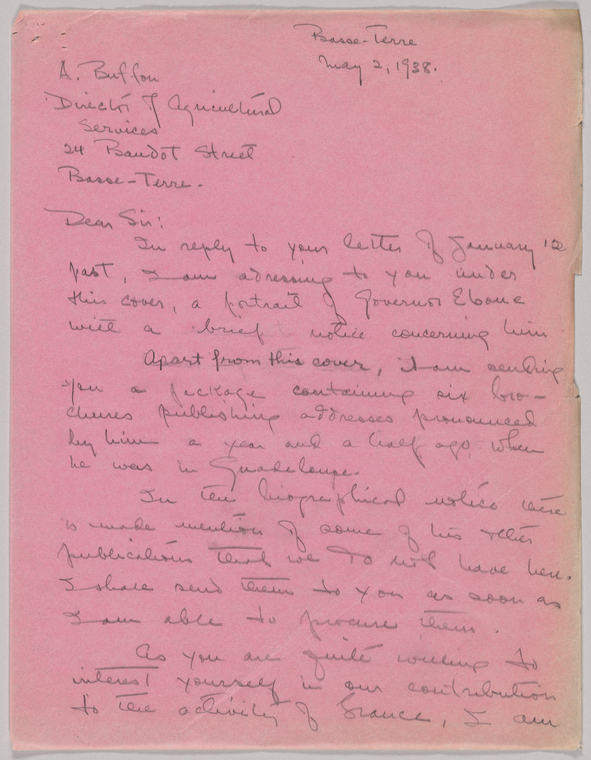 Basse-Terre
May 2, 1938.
A. Buffon
Director of Agricultural
Services
24 Baudot Street
Basse-Terre.
Dear Sir:
In reply to your letter of January 12
past, I am adressing to you under
this cover, a portrait of Governor Eboue
with a brief notice concerning him
Apart from this cover, I am sending
you a package containing six bro-
chures publishing addresses pronounced
by him a year and a half ago when
he was in Guadeloupe.
In the biographical notice there
is made mention of some of his other
publications that we do not have here.
I shall send them to you as soon as
I am able to procure them.
As you are quite willing to
interest yourself in our contribution
to the activity of France, I am